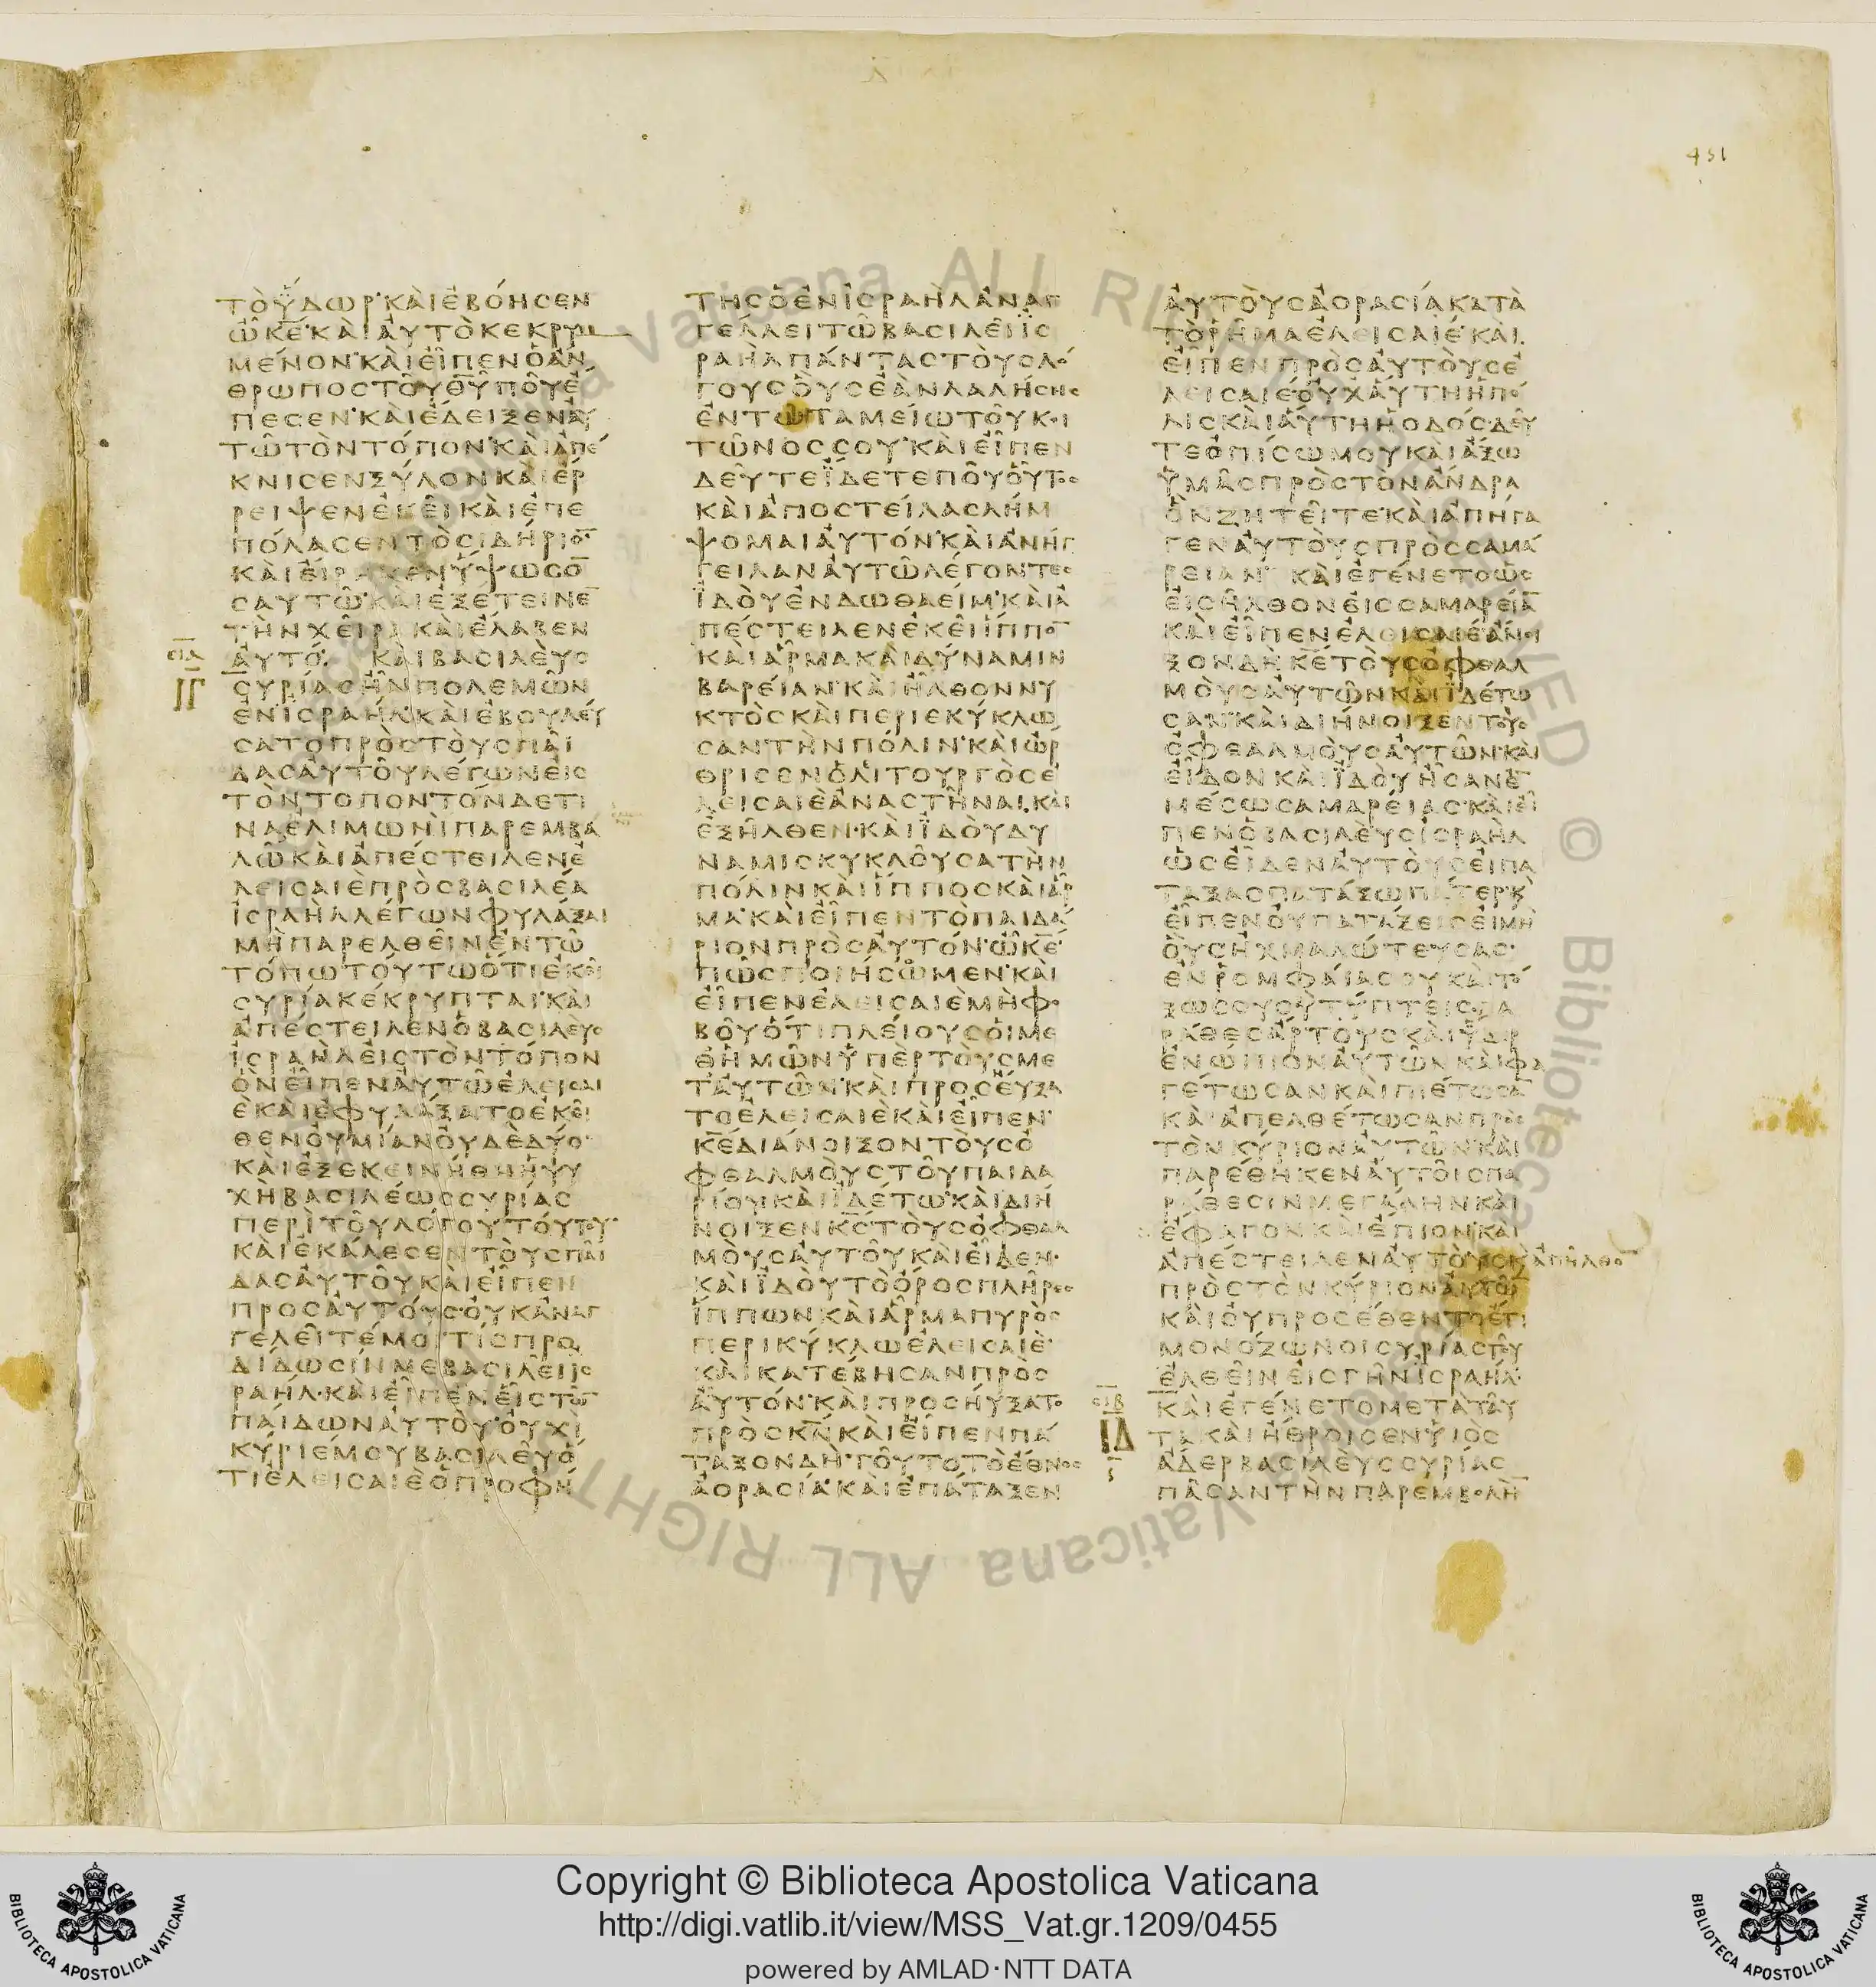 451
ΤΟΫΔΩΡ ΚΑΙΕΒΟΗΣΕΝ
ΩΚΕ ΚΑΙΑΥΤΟΚΕΚΡΥΜ
ΜΕΝΟΝ ΚΑΙΕΙΠΕΝΟΑΝ
ΘΡΩΠΟΣΤΟΥΘΥΠΟΥΕ
ΠΕΣΕΝ ΚΑΙΕΔΕΙΞΕΝΑΥ
ΤΩΤΟΝΤΟΠΟΝ ΚΑΙΑΠΕ
ΚΝΙΣΕΝΞΥΛΟΝΚΑΙΕΡ
ΡΕΙΨΕΝΕΚΕΙ ΚΑΙΕΠΕ
ΠΟΛΑΣΕΝΤΟΣΙΔΗΡΙΟ
ΚΑΙΕΙΡΗΚΕΝΥΨΩΣΟ
ΣΑΥΤΩ ΚΑΙΕΞΕΤΕΙΝΕ
ΤΗΝΧΕΙΡΑ ΚΑΙΕΛΑΒΕΝ
ΑΥΤΟ. ΚΑΙΒΑΣΙΛΕΥΣ
ΙΓ
ΣΥΡΙΑΣΗΝΠΟΛΕΜΩΝ
ΕΝΙΣΡΑΗΛ ΚΑΙΕΒΟΥΛΕΥ
ΣΑΤΟΠΡΟΣΤΟΥΣΠΑΙ
ΔΑΣΑΥΤΟΥΛΕΓΩΝΕΙΣ
ΤΟΝΤΟΠΟΝΤΟΝΔΕΤΙ
ΝΑΕΛΙΜΩΝΙΠΑΡΕΜΒΑ
ΛΩΚΑΙΑΠΕΣΤΕΙΛΕΝΕ
ΛΕΙΣΑΙΕΠΡΟΣΒΑΣΙΛΕΑ
ΙΣΡΑΗΛΛΕΓΩΝΦΥΛΑΞΑΙ
ΜΗΠΑΡΕΛΘΕΙΝΕΝΤΩ
ΤΟΠΩΤΟΥΤΩΟΤΙΕΚΕΙ
ΣΥΡΙΑΚΕΚΡΥΠΤΑΙ ΚΑΙ
ΑΠΕΣΤΕΙΛΕΝΟΒΑΣΙΛΕΥΣ
ΙΣΡΑΗΛΕΙΣΤΟΝΤΟΠΟΝ
ΟΝΕΙΠΕΝΑΥΤΩΕΛΕΙΣΑΙ
Ε ΚΑΙΕΦΥΛΑΞΑΤΟΕΚΕΙ
ΘΕΝΟΥΜΙΑΝΟΥΔΕΔΥΟ
ΚΑΙΕΞΕΚΕΙΝΗΘΗΗΨΥ
ΧΗΒΑΣΙΛΕΩΣΣΥΡΙΑΣ
ΠΕΡΙΤΟΥΛΟΓΟΥΤΟΥΤΟΥ
ΚΑΙΕΚΑΛΕΣΕΝΤΟΥΣΠΑΙ
ΔΑΣΑΥΤΟΥΚΑΙΕΙΠΕΝ
ΠΡΟΣΑΥΤΟΥΣ ΟΥΚΑΝΑΓ
ΓΕΛΕΙΤΕΜΟΙΤΙΣΠΡΟ
ΔΙΔΩΣΙΝΜΕΒΑΣΙΛΕΙΙΣ
ΡΑΗΛ ΚΑΙΕΙΠΕΝΕΙΣΤΩ
ΠΑΙΔΩΝΑΥΤΟΥ ΟΥΧΙ
ΚΥΡΙΕΜΟΥΒΑΣΙΛΕΥΟ
ΤΙΕΛΕΙΣΑΙΕΟΠΡΟΦΗ
ΤΗΣΟΕΝΙΣΡΑΗΛΑΝΑΓ
ΓΕΛΛΕΙΤΩΒΑΣΙΛΕΙΙΣ
ΡΑΗΛΠΑΝΤΑΣΤΟΥΣΛΟ
ΓΟΥΣΟΥΣΕΑΝΛΑΛΗΣΗΣ
ΕΝΤΩΤΑΜΕΙΩΤΟΥΚΟΙ
ΤΩΝΟΣΣΟΥ ΚΑΙΕΙΠΕΝ
ΔΕΥΤΕΪΔΕΤΕΠΟΥΟΥΤΟΣ
ΚΑΙΑΠΟΣΤΕΙΛΑΣΛΗΜ
ΨΟΜΑΙΑΥΤΟΝ ΚΑΙΑΝΗΓ
ΓΕΙΛΑΝΑΥΤΩΛΕΓΟΝΤΕΣ
ΪΔΟΥΕΝΔΩΘΑΕΙΜ ΚΑΙΑ
ΠΕΣΤΕΙΛΕΝΕΚΕΙΙΠΠΟ
ΚΑΙΑΡΜΑΚΑΙΔΥΝΑΜΙΝ
ΒΑΡΕΙΑΝ ΚΑΙΗΛΘΟΝΝΥ
ΚΤΟΣΚΑΙΠΕΡΙΕΚΥΚΛΩ
ΣΑΝΤΗΝΠΟΛΙΝ ΚΑΙΩΡ
ΘΡΙΣΕΝΟΛΙΤΟΥΡΓΟΣΕ
ΛΕΙΣΑΙΕΑΝΑΣΤΗΝΑΙ ΚΑΙ
ΕΞΗΛΘΕΝ ΚΑΙΪΔΟΥΔΥ
ΝΑΜΙΣΚΥΚΛΟΥΣΑΤΗΝ
ΠΟΛΙΝΚΑΙΙΠΠΟΣΚΑΙΑΡ
ΜΑ ΚΑΙΕΙΠΕΝΤΟΠΑΙΔΑ
ΡΙΟΝΠΡΟΣΑΥΤΟΝ ΩΚΕ
ΠΩΣΠΟΙΗΣΩΜΕΝ ΚΑΙ
ΕΙΠΕΝΕΛΕΙΣΑΙΕΜΗΦΟ
ΒΟΥΟΤΙΠΛΕΙΟΥΣΟΙΜΕ
ΘΗΜΩΝΫΠΕΡΤΟΥΣΜΕ
ΤΑΥΤΩΝ ΚΑΙΠΡΟΣΕΥΞΑ
ΤΟΕΛΕΙΣΑΙΕΚΑΙΕΙΠΕΝ
ΚΕΔΙΑΝΟΙΞΟΝΤΟΥΣΟ
ΦΘΑΛΜΟΥΣΤΟΥΠΑΙΔΑ
ΡΙΟΥ ΚΑΙΪΔΕΤΩ ΚΑΙΔΙΗ
ΝΟΙΞΕΝΚΣΤΟΥΣΟΦΘΑΛ
ΜΟΥΣΑΥΤΟΥΚΑΙΕΙΔΕΝ
ΚΑΙΪΔΟΥΤΟΟΡΟΣΠΛΗΡΕΣ
ΙΠΠΩΝΚΑΙΑΡΜΑΠΥΡΟΣ
ΠΕΡΙΚΥΚΛΩΕΛΕΙΣΑΙΕ
ΚΑΙΚΑΤΕΒΗΣΑΝΠΡΟΣ
ΑΥΤΟΝ ΚΑΙΠΡΟΣΗΥΞΑΤΟ
ΠΡΟΣΚΝ ΚΑΙΕΙΠΕΝΠΑ
ΤΑΞΟΝΔΗ ΤΟΥΤΟΤΟΕΘΝΟΣ
ΑΟΡΑΣΙΑ ΚΑΙΕΠΑΤΑΞΕΝ
ΑΥΤΟΥΣΑΟΡΑΣΙΑΚΑΤΑ
ΤΟΡΗΜΑΕΛΕΙΣΑΙΕ ΚΑΙ
ΕΙΠΕΝΠΡΟΣΑΥΤΟΥΣΕ
ΛΕΙΣΑΙΕΟΥΧΑΥΤΗΗΠΟ
ΛΙΣΚΑΙΑΥΤΗΗΟΔΟΣ ΔΕΥ
ΤΕΟΠΙΣΩΜΟΥΚΑΙΑΞΩ
ΫΜΑΣΠΡΟΣΤΟΝΑΝΔΡΑ
ΟΝΖΗΤΕΙΤΕ ΚΑΙΑΠΗΓΑ
ΓΕΝΑΥΤΟΥΣΠΡΟΣΣΑΜΑ
ΡΕΙΑΝ ΚΑΙΕΓΕΝΕΤΟΩΣ
ΕΙΣΗΛΘΟΝΕΙΣΣΑΜΑΡΕΙΑ
ΚΑΙΕΙΠΕΝΕΛΕΙΣΑΙΕΑΝΟΙ
ΞΟΝΔΗΚΕΤΟΥΣΟΦΘΑΛ
ΜΟΥΣΑΥΤΩΝΚΑΙΪΔΕΤΩ
ΣΑΝ ΚΑΙΔΙΗΝΟΙΞΕΝΤΟΥΣ
ΟΦΘΑΛΜΟΥΣΑΥΤΩΝ ΚΑΙ
ΕΙΔΟΝΚΑΙΪΔΟΥΗΣΑΝΕ
ΜΕΣΩΣΑΜΑΡΕΙΑΣ ΚΑΙΕΙ
ΠΕΝΟΒΑΣΙΛΕΥΣΙΣΡΑΗΛ
ΩΣΕΙΔΕΝΑΥΤΟΥΣΕΙΠΑ
ΤΑΞΑΣΠΑΤΑΞΩΠΑΤΕΡ Κ
ΕΙΠΕΝΟΥΠΑΤΑΞΕΙΣΕΙΜΗ
ΟΥΣΗΧΜΑΛΩΤΕΥΣΑΣ
ΕΝΡΟΜΦΑΙΑΣΟΥΚΑΙΤΟ
ΞΩΣΟΥΣΥΤΥΠΤΕΙΣ ΠΑ
ΡΑΘΕΣΑΡΤΟΥΣΚΑΙΫΔΩΡ
ΕΝΩΠΙΟΝΑΥΤΩΝ ΚΑΙΦΑ
ΓΕΤΩΣΑΝΚΑΙΠΙΕΤΩΣΑ
ΚΑΙΑΠΕΛΘΕΤΩΣΑΝΠΡΟΣ
ΤΟΝΚΥΡΙΟΝΑΥΤΩΝ ΚΑΙ
ΠΑΡΕΘΗΚΕΝΑΥΤΟΙΣΠΑ
ΡΑΘΕΣΙΝΜΕΓΑΛΗΝΚΑΙ
ΕΦΑΓΟΝΚΑΙΕΠΙΟΝ ΚΑΙ
ΑΠΕΣΤΕΙΛΕΝΑΥΤΟΥΣΚΑΠΗΛΘΟ
ΠΡΟΣΤΟΝΚΥΡΙΟΝΑΥΤΩ
ΚΑΙΟΥΠΡΟΣΕΘΕΝΤΟΕΤΙ
ΜΟΝΟΖΩΝΟΙΣΥΡΙΑΣΤΟΥ
ΕΛΘΕΙΝΕΙΣΓΗΝΙΣΡΑΗΛ
ΚΑΙΕΓΕΝΕΤΟΜΕΤΑΤΑΥ
ΙΔ
ΤΑΚΑΙΗΘΡΟΙΣΕΝΥΙΟΣ
ΑΔΕΡΒΑΣΙΛΕΥΣΣΥΡΙΑΣ
ΠΑΣΑΝΤΗΝΠΑΡΕΜΒΟΛΗ
Copyright © Biblioteca Apostolica Vaticana
http://digi.vatlib.it/view/MSS_Vat.gr.1209/0455
powered by AMLAD·NTT DATA
BIBLIOTECA APOSTOLICA VATICANA
BIBLIOTECA APOSTOLICA VATICANA